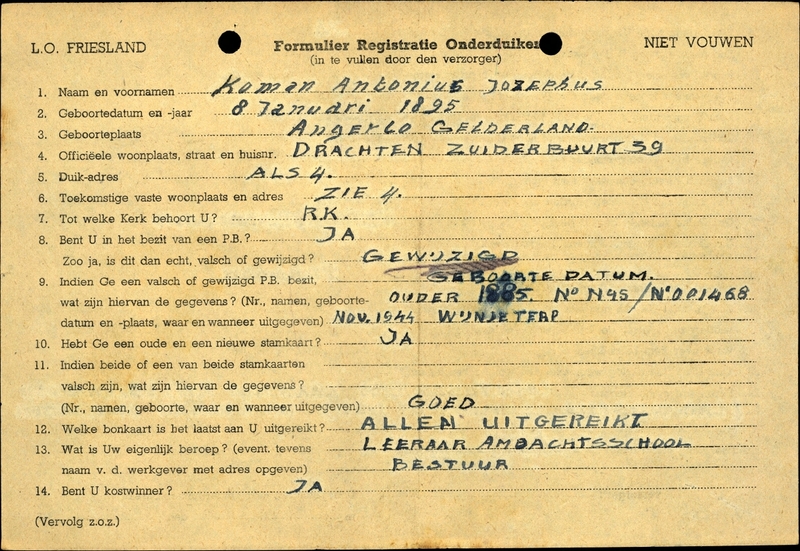 L.O. FRIESLAND
Formulier Registratie Onderduiker
NIET VOUWEN
(in te vullen door den verzorger)
1. Naam en voornamen Koman Antonius Jozephus
2. Geboortedatum en -jaar 8 Januari 1895
3. Geboorteplaats Angerlo GELDERLAND.
4. Officiëele woonplaats, straat en huisnr. DRACHTEN ZUIDERBUURT 59
5. Duik-adres ALS 4.
6. Toekomstige vaste woonplaats en adres ZIE 4.
7. Tot welke Kerk behoort U? R.K.
8. Bent U in het bezit van een P.B.? JA
Zoo ja, is dit dan echt, valsch of gewijzigd? GEWIJZIGD
9. Indien Ge een valsch of gewijzigd P.B. bezit, GEBOORTE DATUM.
wat zijn hiervan de gegevens? (Nr., namen, geboorte- OUDER 1885. No N45/No 001468
datum en -plaats, waar en wanneer uitgegeven) NOV. 1944 WIJNJETERP
10. Hebt Ge een oude en een nieuwe stamkaart? JA
11. Indien beide of een van beide stamkaarten
valsch zijn, wat zijn hiervan de gegevens?
(Nr., namen, geboorte, waar en wanneer uitgegeven) GOED
12. Welke bonkaart is het laatst aan U uitgereikt? ALLEN UITGEREIKT
13. Wat is Uw eigenlijk beroep? (event. tevens LEERAAR AMBACHTSSCHOOL
naam v. d. werkgever met adres opgeven) BESTUUR
14. Bent U kostwinner? JA
(Vervolg z.o.z.)